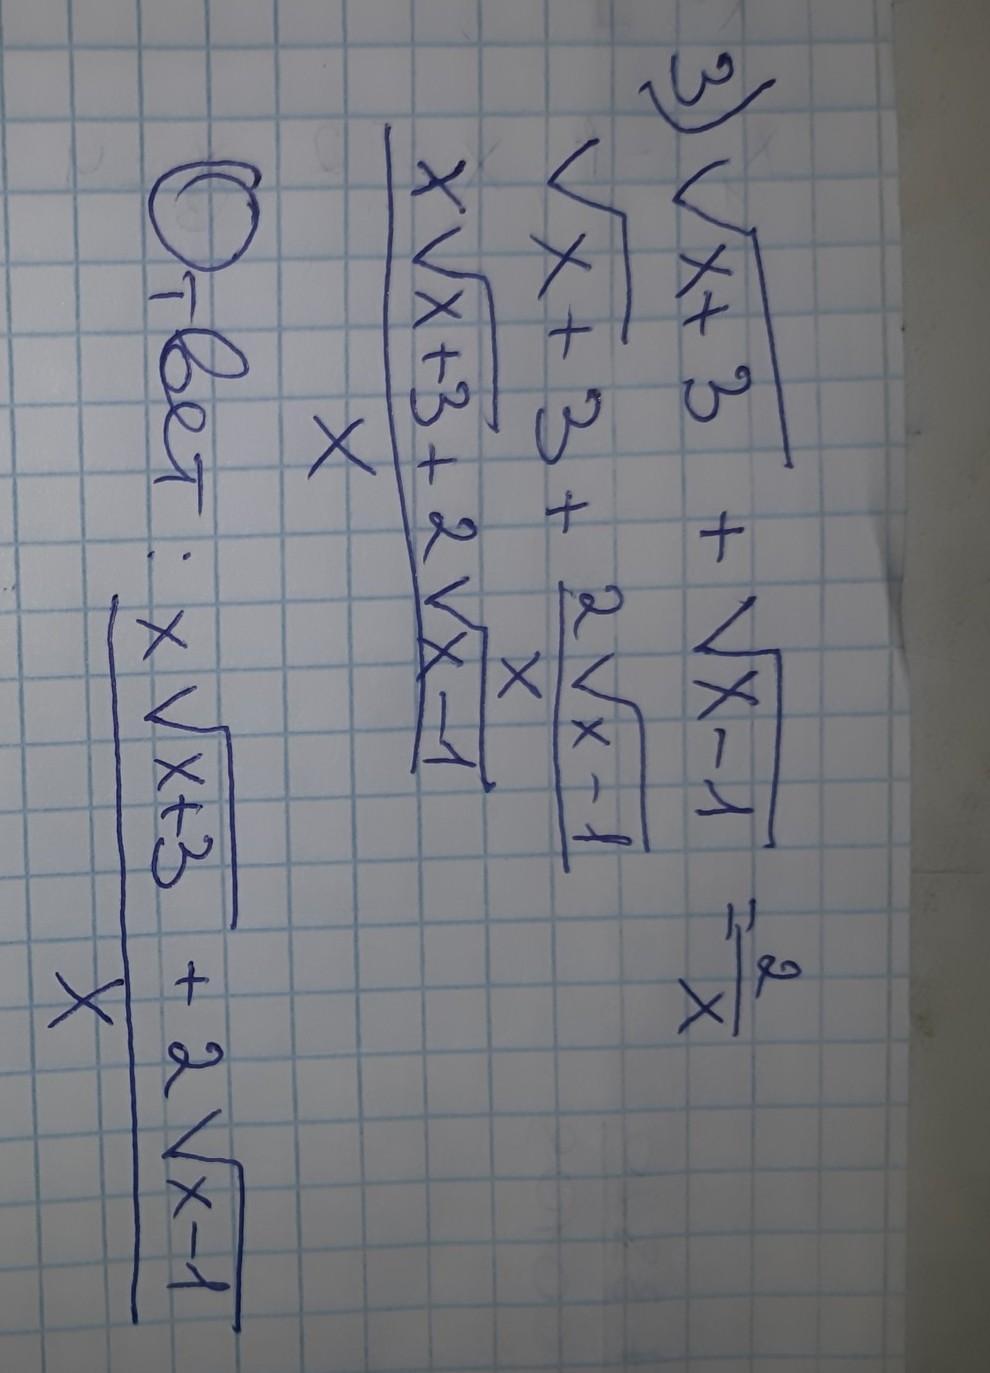 3) √x+3 + √x-1 = 2/x
√x + 3 + 2√x-1/x
x√x+3 + 2√x-1
x
Ответ: x√x+3 + 2√x-1
x